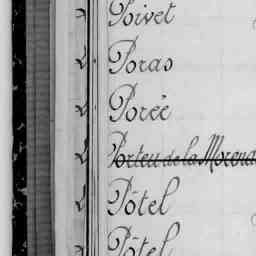 Poivet
Poras
Porée
Porteu de la Morena
Pôtel
Pôtel